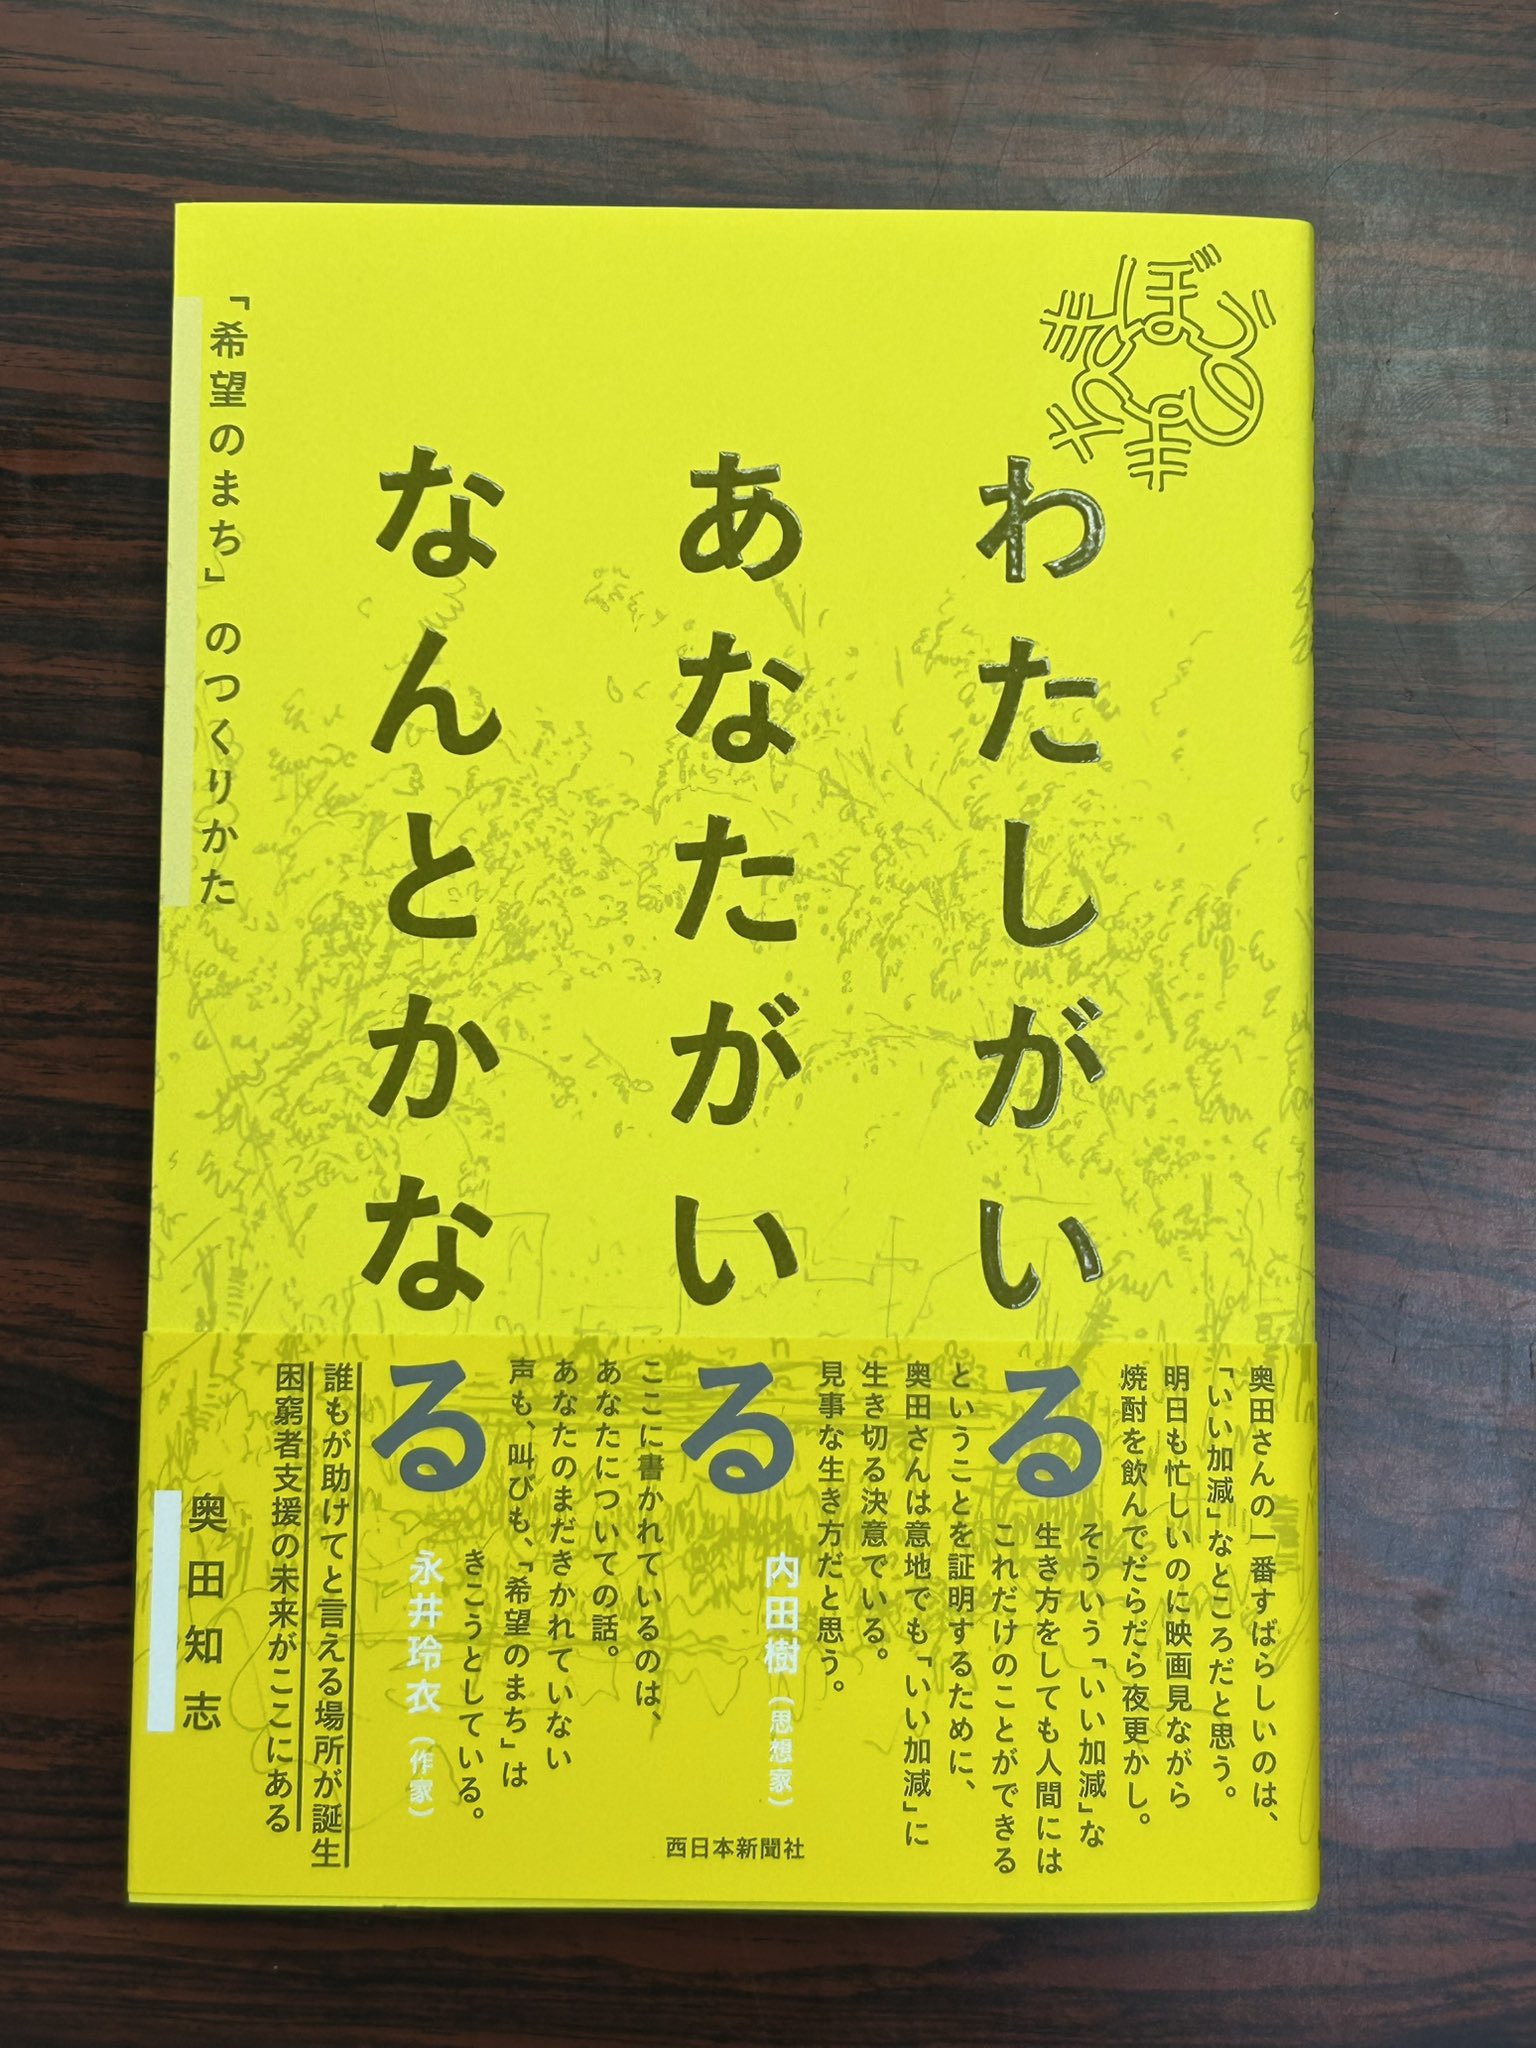 きぼうのまち
わたしがいる
あなたがいる
なんとかなる
「希望のまち」のつくりかた
奥田さんの一番すばらしいのは、
「いい加減」なところだと思う。
明日も忙しいのに映画見ながら
焼酎を飲んでだらだら夜更かし。
そういう「いい加減」な
生き方をしても人間には
これだけのことができる
ということを証明するために、
奥田さんは意地でも「いい加減」に
生き切る決意でいる。
見事な生き方だと思う。
内田樹（思想家）
ここに書かれているのは、
あなたについての話。
あなたのまだきかれていない
声も、叫びも、「希望のまち」は
きこうとしている。
永井玲衣（作家）
誰もが助けてと言える場所が誕生
困窮者支援の未来がここにある
奥田知志
西日本新聞社